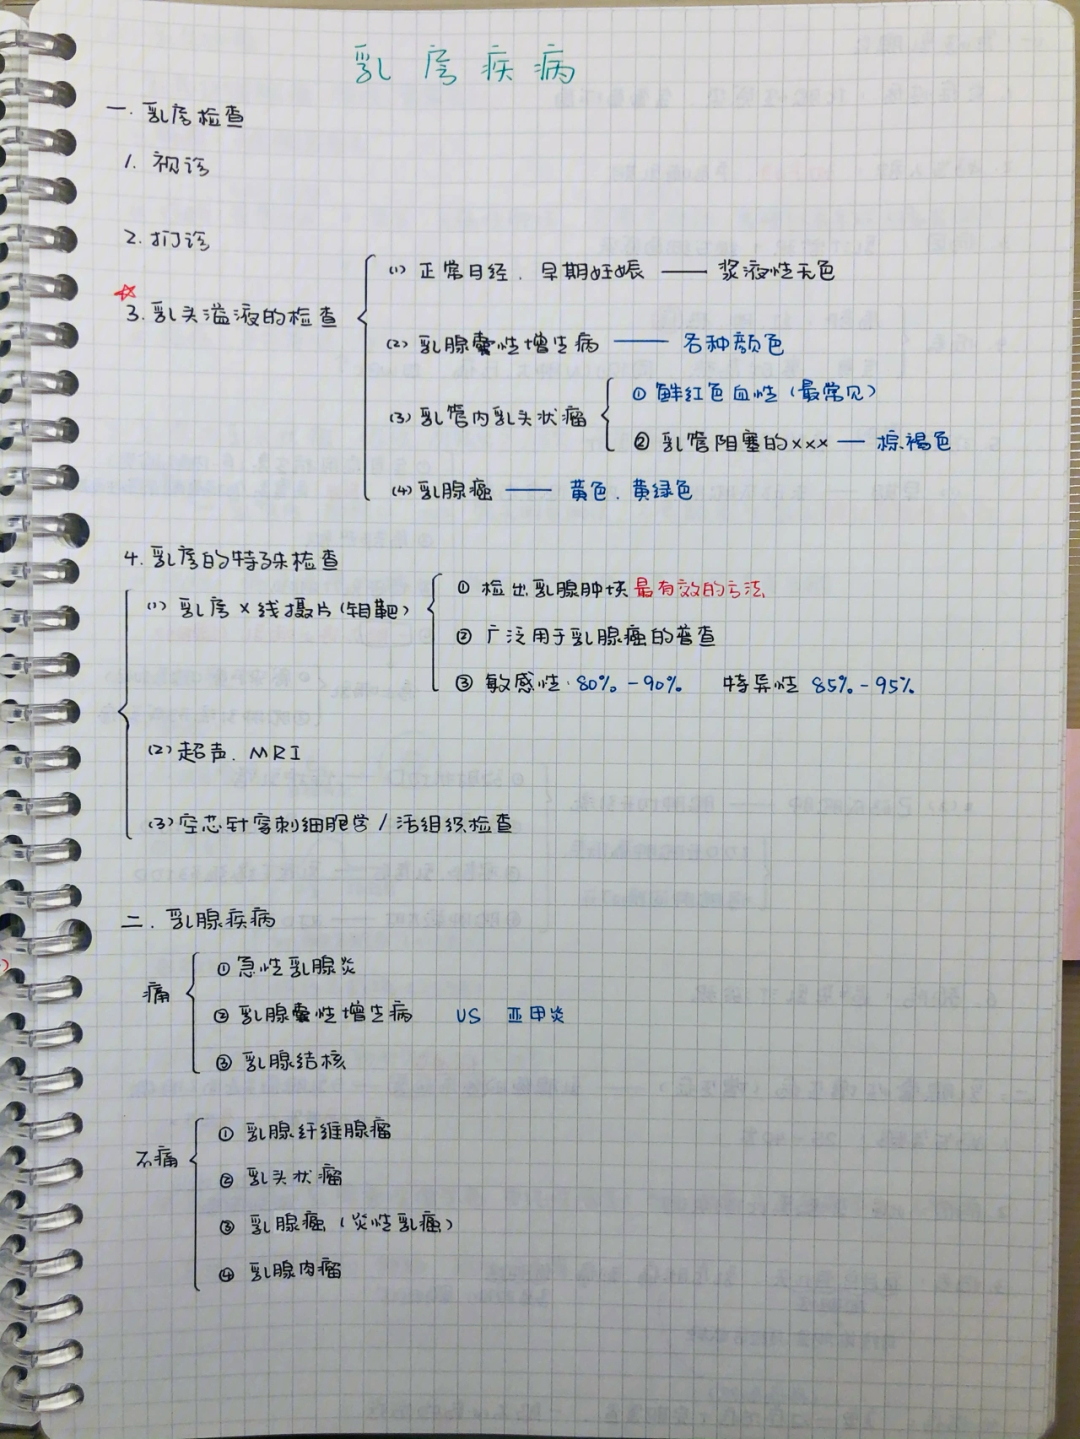 乳房疾病
一.乳房检查
1. 视诊
2. 扪诊
☆
3.乳头溢液的检查
(1) 正常月经、早期妊娠 —— 浆液性无色
(2) 乳腺囊性增生病 —— 各种颜色
(3) 乳管内乳头状瘤
① 鲜红色血性(最常见)
② 乳管阻塞的xxx — 棕褐色
(4) 乳腺癌 —— 黄色、黄绿色
4.乳房的特殊检查
(1) 乳房X线摄片(钼靶)
① 检出乳腺肿块最有效的方法
② 广泛用于乳腺癌的普查
③ 敏感性:80%-90% 特异性 85%-95%
(2) 超声、MRI
(3) 空芯针穿刺细胞学/活组织检查
二.乳腺疾病
痛
① 急性乳腺炎
② 乳腺囊性增生病 VS 亚甲炎
③ 乳腺结核
不痛
① 乳腺纤维腺瘤
② 乳头状瘤
③ 乳腺癌(炎性乳癌)
④ 乳腺肉瘤